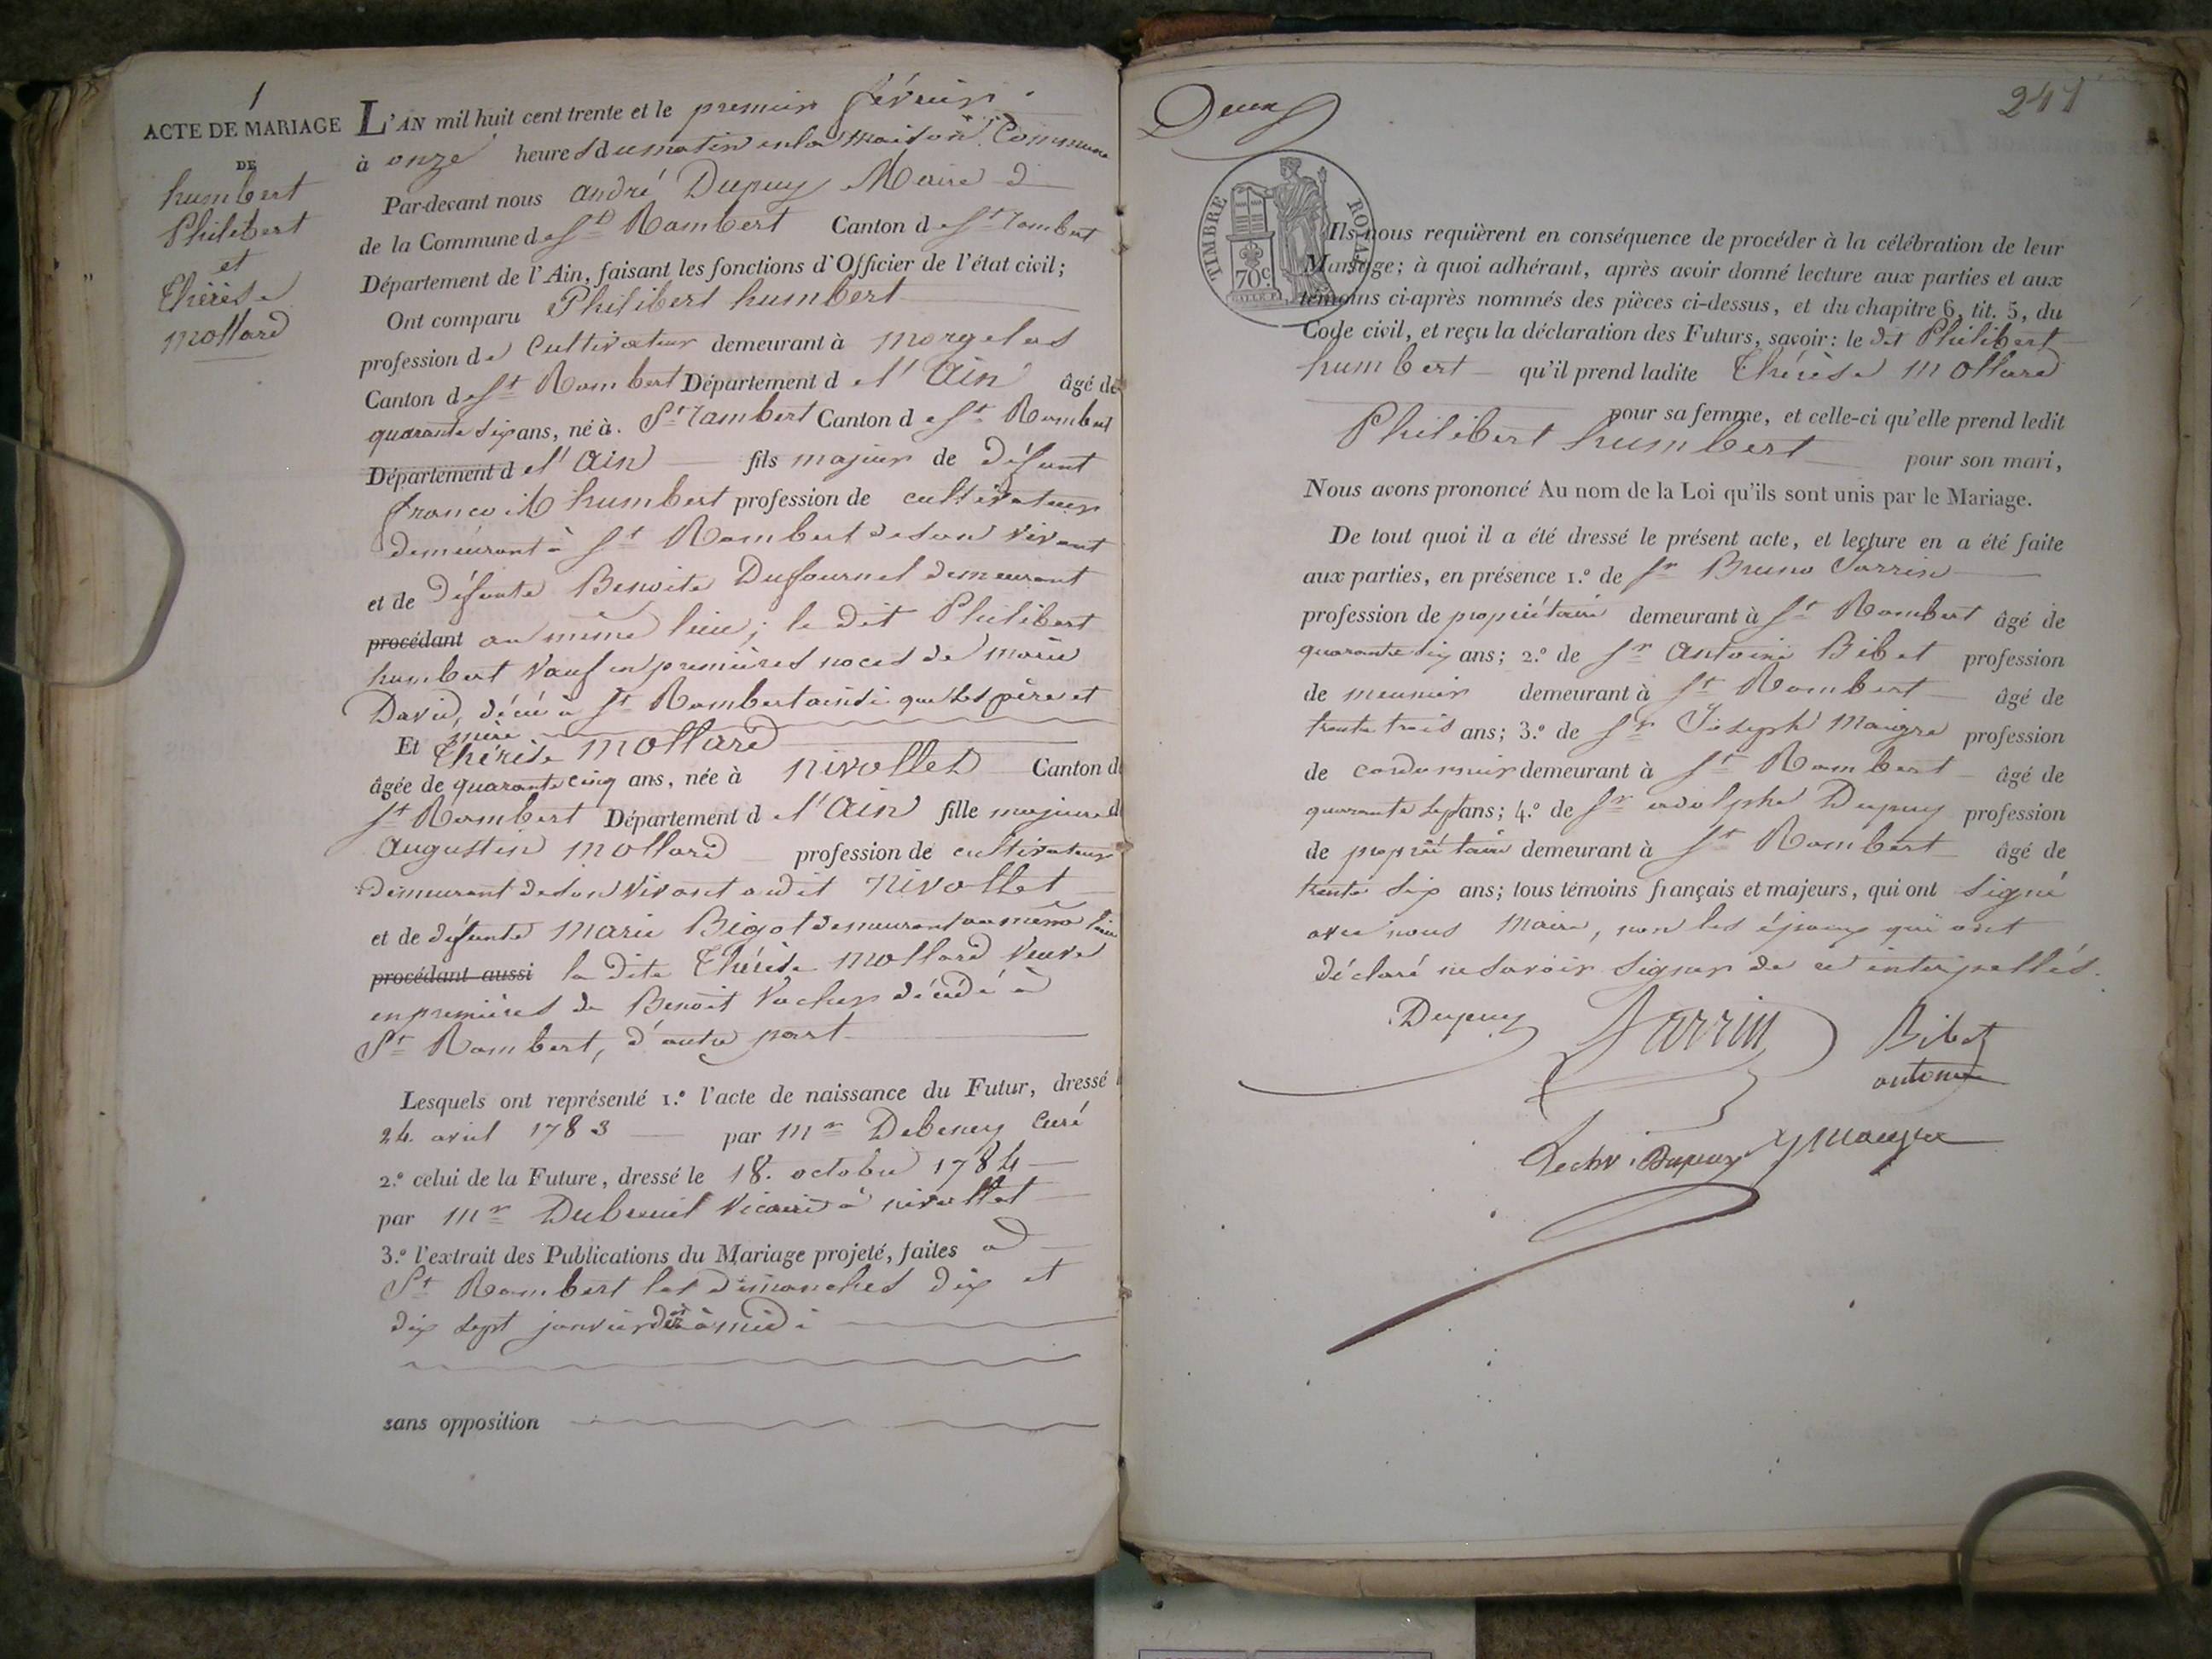 1
ACTE DE MARIAGE
DE
humbert
Philibert
et
Thérèse
mollard
L'AN mil huit cent trente et le premier février
à onze heures du matin en la maison Commune
Par-devant nous andré Dupuy Maire d
de la Commune de St Rambert Canton de St rambert
Département de l'Ain, faisant les fonctions d'Officier de l'état civil;
Ont comparu Philibert humbert
profession de Cultivateur demeurant à morgelas
Canton de St Rambert Département de l'Ain âgé de
quarante six ans, né à St rambert Canton de St Rambert
Département de l'Ain fils majeur de défunt
francois humbert profession de cultivateur
demeurant à St Rambert de son vivant
et de défunte Benoite Duffournel demeurant
procédant au même lieu; le dit Philibert
humbert Vauf en premières noces de marie
David, décéé à St Rambert ainsi que ses père et
mère
Et Thérèse mollard
âgée de quarante cinq ans, née à nivollet Canton d
St Rambert Département de l'Ain fille majeure d
augustin mollard profession de cultivateur
demeurant de son vivant audit nivollet
et de défunte marie Bigot demeurant au même lieu
procédant aussi la dite Thérèse mollard Veuve
en premières de Benoit Vacher décédé à
St Rambert, d'autre part
Lesquels ont représenté 1.º l'acte de naissance du Futur, dressé l
24 avril 1783 par mr Debeney Curé
2.º celui de la Future, dressé le 18. octobre 1784
par mr Dubreuil Vicaire à nivollet
3.º l'extrait des Publications du Mariage projeté, faites a
St Rambert les dimanches dix et
dix sept janvier à midi
sans opposition
Deux
241
TIMBRE ROYAL
70c.
Ils nous requièrent en conséquence de procéder à la célébration de leur
Mariage; à quoi adhérant, après avoir donné lecture aux parties et aux
témoins ci-après nommés des pièces ci-dessus, et du chapitre 6, tit. 5, du
Code civil, et reçu la déclaration des Futurs, savoir: le dit Philibert
humbert qu'il prend ladite Thérèse mollard
pour sa femme, et celle-ci qu'elle prend ledit
Philibert humbert pour son mari,
Nous avons prononcé Au nom de la Loi qu'ils sont unis par le Mariage.
De tout quoi il a été dressé le présent acte, et lecture en a été faite
aux parties, en présence 1.º de Sr Bruno Sarrin
profession de propriétaire demeurant à St Rambert âgé de
quarante six ans; 2.º de Sr antoine Bibet profession
de meunier demeurant à St Rambert âgé de
trente trois ans; 3.º de Sr Joseph Maigre profession
de cordonnier demeurant à St Rambert âgé de
quarante sept ans; 4.º de Sr adolphe Dupuy profession
de propriétaire demeurant à St Rambert âgé de
trente six ans; tous témoins français et majeurs, qui ont signé
avec nous Maire, non les époux qui ont
déclaré ne savoir signer de ce interpellés.
Dupuy Sarrin Bibet
antoine
Dupuy